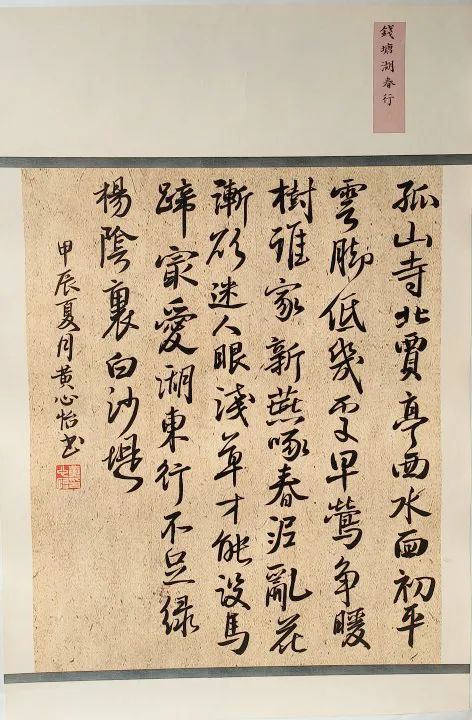 錢塘湖春行
孤山寺北賈亭西水面初平
雲腳低幾處早鶯争暖
樹誰家新燕啄春泥亂花
漸欲迷人眼淺草才能沒馬
蹄最愛湖東行不足綠
楊陰裏白沙堤
甲辰夏月黃心怡书